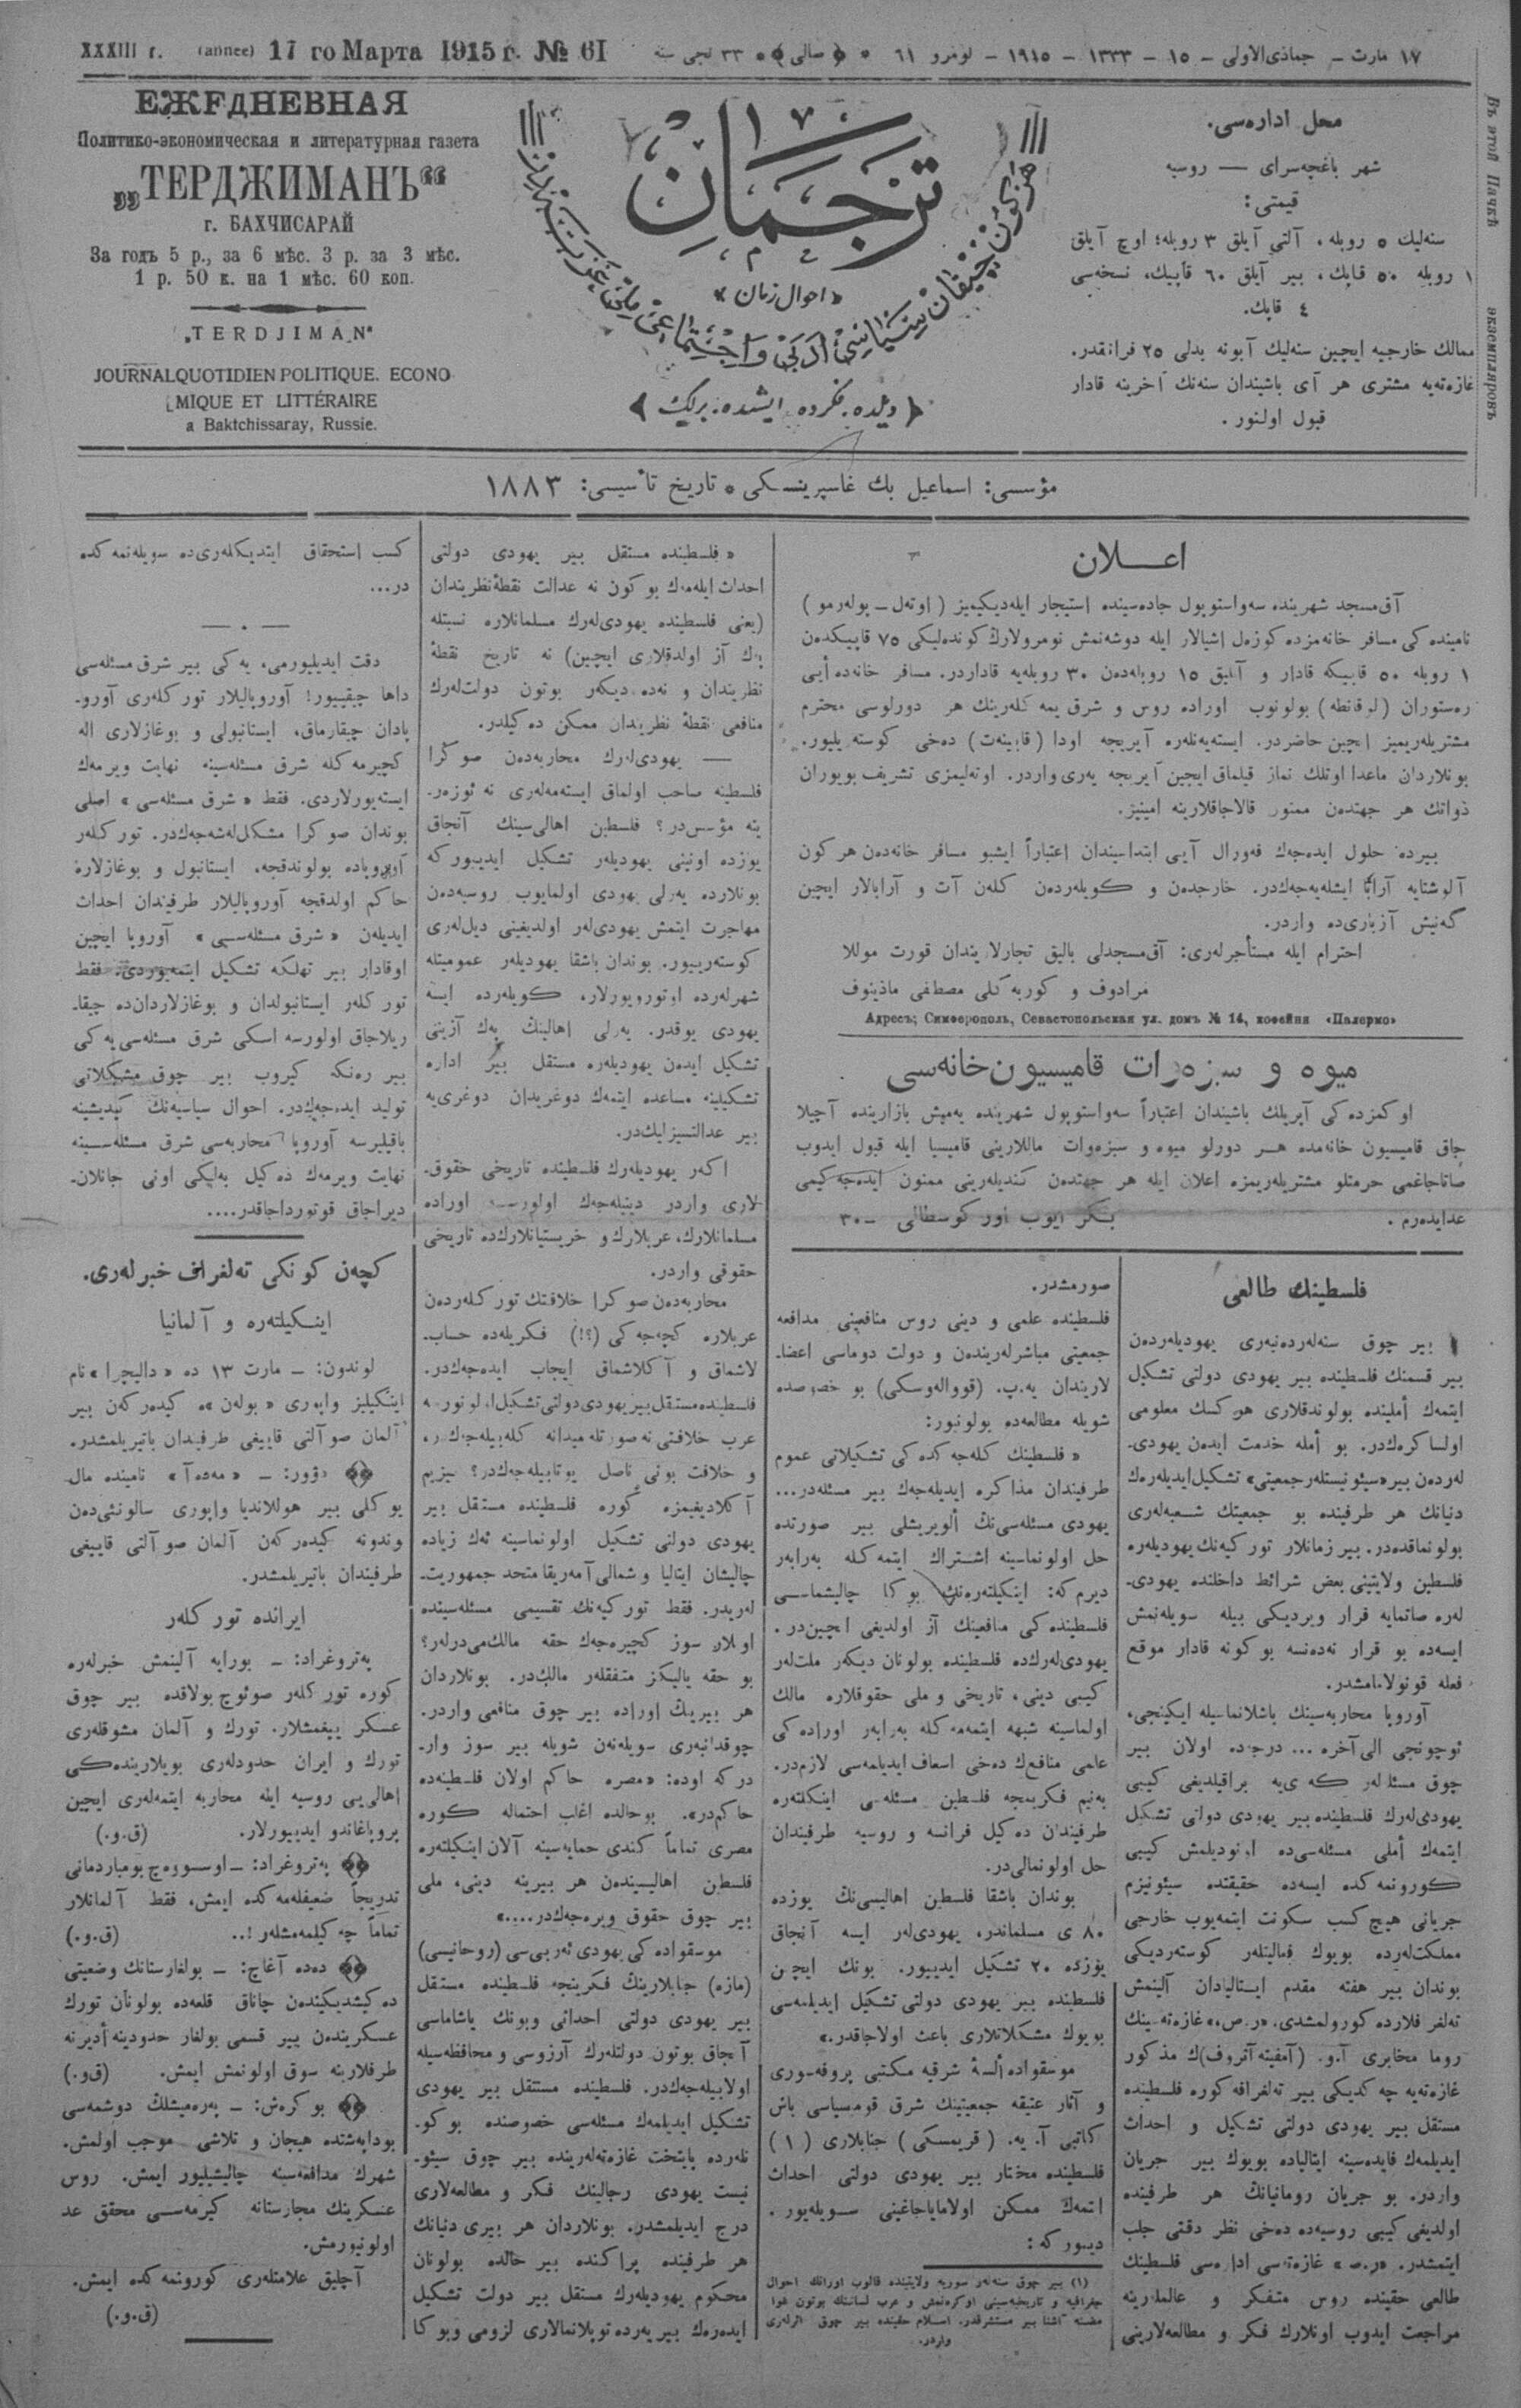 XXXIII г. (annee) 17 го Марта 1915 г. № 61
١٧ مارت – جمادی‌الاولی – ١٥ – ١٣٣٣ – ١٩١٥ – نومرو ٦١ * (صالی) * ٣٣ نجی سنه
ЕЖЕДНЕВНАЯ
Политико-экономическая и литературная газета
„ТЕРДЖИМАНЪ“
г. БАХЧИСАРАЙ
За годъ 5 р., за 6 мѣс. 3 р. за 3 мѣс.
1 р. 50 к. на 1 мѣс. 60 коп.
„TERDJIMAN“
JOURNAL QUOTIDIEN POLITIQUE. ECONO
MIQUE ET LITTÉRAIRE
a Baktchissaray, Russie.
ترجمان
«احوال زمان»
(دیلده، فکرده، ایشده، برلیک)
محل اداره‌سی.
شهر باغچه‌سرای — روسیه
قیمتی:
سنه‌لیك ٥ روبله، آلتی آیلق ٣ روبله؛ اوچ آیلق
١ روبله ٥٠ قاپك، بیر آیلق ٦٠ قاپیك، نسخه‌سی
٤ قاپك.
ممالك خارجیه ایچین سنه‌لیك آبونه بدلی ٢٥ فرانقدر.
غازه‌ته‌یه مشتری هر آی باشیندان سنه‌نك آخرینه قادار
قبول اولنور.
Въ этой пачкѣ экземпляровъ
مؤسسی: اسماعیل بك غاسپرینسکی * تاریخ تأسیسی: ١٨٨٣
اعــلان
آق‌مسجد شهرینده سه‌واستوپول جاده‌سینده استیجار ایله‌دیکیمیز (اوته‌ل – بوله‌رمو)
نامینده کی مسافر خانه‌مزده کوزه‌ل إشیالار ایله دوشه‌نمش نومرولارڭ کونده‌لیکی ٧٥ قاپیکدن
١ روبله ٥٠ قاپیکه قادار و آیلیق ١٥ روبله‌دن ٣٠ روبله‌یه قاداردر. مسافر خانه‌ده أیی
ره‌ستوران (لوقانطه) بولونوب اوراده روس و شرق یمه کله‌رینك هر دورلوسی محترم
مشتریله‌ریمیز ایچین حاضردر. ایسته‌یه‌نله‌ره آیریجه اودا (قابینه‌ت) ده‌خی کوسته‌ریلیور.
بونلاردان ماعدا اوتلك نماز قیلماق ایچین آیریجه یه‌ری واردر. اوته‌لیمزی تشریف بویوران
ذواتك هر جهتدن ممنون قالاجاقلارینه امینیز.
بیرده حلول ایده‌جه‌ك فه‌ورال آیی ابتداسیندان إعتباراً ایشبو مسافر خانه‌دن هر کون
آلوشتایه آرابا ایشله‌یه‌جه‌كدر. خارجدن و کویله‌ردن کله‌ن آت و آرابالار ایچین
گه‌نیش آزباری‌ده واردر.
احترام ایله مستأجرله‌ری: آق‌مسجدلی بالیق تجارلاریندان قورت موللا
مرادوف و کوربه‌کلی مصطفی ماذینوف
Адресъ; Симферополь, Севастопольская ул. домъ № 14, кофейня «Палермо»
میوه و سبزه‌وات قامیسیون‌خانه‌سی
اوکمزده کی آپریلك باشیندان اعتباراً سه‌واستوپول شهرینده یه‌میش بازارینده آچیلا
جاق قامیسیون خانه‌مده هـر دورلو میوه و سبزه‌وات ماللارینی قامیسیا ایله قبول ایدوب
صاتاجاغمی حرمتلو مشتریله‌ریمزه اعلان ایله هر جهتدن کندیله‌رینی ممنون ایده‌جه‌کیمی
عدایده‌رم.
بـکر ایوب اور کوسطالی – ٣٠
فلسطینك طالعی
بیر چوق سنه‌له‌رده‌نبه‌ری یهودیله‌ردن
بیر قسمنك فلسطینده بیر یهودی دولتی تشکیل
ایتمه‌ك أملینده بولوندقلاری هر کسك معلومی
اولسا کره‌كدر. بو أمله خدمت ایده‌ن یهودی‌
له‌ردن بیر «سیئونیستله‌ر جمعیتی» تشکیل ایدیله‌ره‌ك
دنیانك هر طرفینده بو جمعیتك شـعبه‌له‌ری
بولونماقده‌در. بیر زمانلار تورکیه‌نك یهودیله‌ره
فلسطین ولایتینی بعض شرائط داخلنده یهودی‌
له‌ره صاتمایه قرار ویردیکی بیله سویله‌نمش
ایسه‌ده بو قرار نه‌ده‌نسه بو کونه قادار موقع
فعله قونولامامشدر.
آوروپا محاربه‌سینك باشلانماسیله ایکینجی،
ئوچونجی الی آخره ... درجه‌ده اولان بیر
چوق مسئله‌لر که‌ری‌یه براقیلدیغی کیبی
یهودی‌له‌رك فلسطینده بیر یهودی دولتی تشکیل
ایتمه‌ك أملی مسئله‌سی‌ده اونودیلمش کیبی
کـورونمه‌کده ایسه‌ده حقیقتده سیئونیزم
جریانی هیچ کسب سکونت ایتمه‌یوب خارجی
مملکت‌له‌رده بویوك فعالیتله‌ر کوسته‌ردیکی
بوندان بیر هفته مقدم ایـتالیادان آلینمش
ته‌لغرافلارده کورولمشدی. «ر.ص.» غازه‌ته‌سینك
روما مخابری آ.و. (آمفیته‌آتروف)ك مذکور
غازه‌ته‌یه چه‌کدیکی بیر ته‌لغرافه کوره فلسطینده
مستقل بیر یهودی دولتی تشکیل و احداث
ایدیلمه‌ك فایده‌سینه ایتالیاده بویوك بیر جریان
واردر. بو جریان رومانیانڭ هر طرفینده
اولدیغی کیبی روسیه‌ده ده‌خی نظر دقتی جلب
ایتمشدر. «ر.ص» غازه‌ته‌سی اداره‌سی فلسطینك
طالعی حقینده روس متـفکر و عالملرینه
مراجعت ایدوب اونلارك فکر و مطالعه‌لارینی
صورمشدر.
فلسطینده علمی و دینی روس منافعینی مدافعه
جمعیتی مباشرله‌ریندن و دولت دوماسی اعضا-
لاریندان یه.پ. (قووالـه‌وسکی) بو خصوصده
شویله مطالعه‌ده بولونیور:
«فلسطینك کله‌جه‌کده کی تشکیلاتی عموم
طرفیندان مذاکره ایدیله‌جه‌ك بیر مسئله‌در...
یهودی مسئله‌سی‌نڭ ألویریشلی بیر صورتده
حل اولونماسینه اشـتراك ایتمه‌کله به‌رابه‌ر
دیرم‌که: اینکیلته‌ره‌نڭ بوکا چالیشماسـی
فلسطینده کی منافعینك آز اولدیغی ایچین‌در.
یهودی‌له‌رك‌ده فلسطینده بولونان دیکه‌ر ملت‌له‌ر
کیبی دینی، تاریخی و ملی حقوقلاره مالك
اولماسینه شبهه ایتمه‌مه‌کله به‌رابه‌ر اوراده کی
علمی منافعك ده‌خی اسعاف ایدیلمه‌سی لازم‌در.
به‌نیم فکریمجه فلسطین مسئله‌سی اینکلته‌ره
طرفیندان ده‌کیل فرانسه و روسیه طرفیندان
حل اولونمالی‌در.
بوندان باشقا فلسطین اهالیسی‌نڭ یوزده
٨٠ ی مسلماندر، یهودی‌له‌ر ایسه آنجاق
یوزده ٢٠ تشکیل ایدییور. بونك ایچین
فلسطینده بیر یهودی دولتی تشکیل ایدیلمه‌سی
بویوك مشکلاتلاری باعث اولاجاقدر.»
موسقواده ألسنهٔ شرقیه مکتبی پروفه‌سوری
و آثار عتیقه جمعیتینك شرق قومسیاسی باش
کاتبی آ. یه. (قریمسکی) جنابلاری (١)
فلسطینده مختار بیر یهودی دولتی احداث
اتمه‌ك ممکن اولامایاجاغینی سـویله‌یور.
دییور که:
(١) بیر چوق سنه‌له‌ر سوریه ولایتینده قالوب اورانك احوال
جغرافیه و تاریخیه‌سینی اوکره‌نمش و عرب لساننك بوتون غوا
مضنه آشنا بیر مستشرقدر. اسلام حقینده بیر چوق اثرله‌ری
واردر.
«فلسطینده مستقل بیر یهودی دولتی
احداث ایله‌مه‌ك بوکون نه عدالت نقطهٔ نظریندان
(یعنی فلسطینده یهودی‌له‌رك مسلمانلاره نسبتله
په‌ك آز اولدقلاری ایچین) نه تاریخ نقطهٔ
نظریندان و نه‌ده دیکه‌ر بوتون دولت‌له‌رك
منافعی نقطهٔ نظریندان ممکن ده‌کیلدر.
— یهودی‌له‌رك محاربه‌دن صوکرا
فلسطینه صاحب اولماق ایسته‌مه‌له‌ری نه ئوزه‌ر-
ینه مؤسس‌در؟ فلسطین اهالی‌سینك آنجاق
یوزده اونینی یهودیله‌ر تشکیل ایدییور که
بونلارده یه‌رلی یهودی اولمایوب روسیه‌دن
مهاجرت ایتمش یهودی‌له‌ر اولدیغینی دیل‌له‌ری
کوسته‌رییور. بوندان باشقا یهودیله‌ر عمومیتله
شهرله‌رده اوتورویورلار، کـویله‌رده ایسه
یهودی یوقدر. یه‌رلی اهالینڭ په‌ك آزینی
تشکیل ایده‌ن یهودیله‌ره مستقل بیر اداره
تشکیلینه مساعده ایتمه‌ك دوغریدان دوغری‌یه
بیر عدالتسزلیك‌در.
اکه‌ر یهودیله‌رك فلسطینده تاریخی حقوق-
لاری واردر دینیله‌جه‌ك اولورسه اوراده
مسلمانلارك، عربلارك و خریستیانلارك‌ده تاریخی
حقوقی واردر.
محاربه‌دن صوکرا خلافتك تورکله‌ردن
عربلاره کچه‌جه‌کی (؟!) فکریله‌ده حساب-
لاشماق و آکلاشماق ایجاب ایده‌جه‌كدر.
فلسطینده مستقل بیر یهودی دولتی تشکیل اولونورسه
عرب خلافتی نه صورتله میدانه کله‌بیله‌جه‌ك‌در،
و خلافت بونی ناصل یوتابیله‌جه‌كدر؟ بیزیم
آکلادیغیمزه کوره فلسطینده مستقل بیر
یهودی دولتی تشکیل اولونماسینه ئه‌ك زیاده
چالیشان ایتالیا و شمالی آمه‌ریقا متحد جمهوریت-
له‌ریدر. فقط تورکیه‌نك تقسیمی مسئله‌سینده
اولان سوز کچیره‌جه‌ك حقه مالك‌می‌درله‌ر؟
بو حقه یالیکز متفقله‌ر مالك‌در. بونلاردان
هر بیرینڭ اوراده بیر چوق منافعی واردر.
چوقدانبه‌ری سویله‌نه‌ن شویله بیر سوز وار-
در که اوده: «مصره حاکم اولان فلسطینه‌ده
حاکم‌در». بوحالده اغلب احتماله کـوره
مصری تماماً کندی حمایه‌سینه آلان اینکیلته‌ره
فلسطین اهالیسیندن هر بیرینه دینی، ملی
بیر چوق حقوق ویره‌جه‌كدر....»
موسقواده کی یهودی ئه‌ربی‌سی (روحانیسی)
(مازه) جنابلارینڭ فکرینجه فلسطینده مستقل
بیر یهودی دولتی احداثی وبونك یاشاماسی
آنجاق بوتون دولتله‌رك آرزوسی و محافظه‌سیله
اولابیله‌جه‌كدر. فلسطینده مستقل بیر یهودی
تشکیل ایدیلمه‌ك مسئله‌سی خصوصنده بو کو-
نله‌رده پایتخت غازه‌ته‌له‌رینده بیر چوق سیئو-
نیست یهودی رجالینك فکر و مطالعه‌لاری
درج ایدیلمشدر. بونلاردان هر بیری دنیانك
هر طرفینده پراکنده بیر حالده بولونان
محکوم یهودیله‌رك مستقل بیر دولت تشکیل
ایده‌ره‌ك بیر یه‌رده توپلانمالاری لزومی وبوکا
کسب إستحقاق ایتدیکله‌ری‌ده سویله‌نمه‌کده
در...
دقت ایدیلیورمی، یه‌کی بیر شرق مسئله‌سی
داها چیقییور! آوروپالیلار تورکله‌ری آورو-
پادان چیقارماق، ایستانبولی و بوغازلاری اله
کچیرمه‌کله شرق مسئله‌سینه نهایت ویرمه‌ك
ایسته‌یورلاردی. فقط «شرق مسئله‌سی» اصلی
بوندان صوکرا مشکل‌له‌شه‌جه‌ك‌در. تورکله‌ر
آوروپاده بولوندقجه، ایستانبول و بوغازلاره
حاکم اولدقجه آوروپالیلار طرفیندان احداث
ایدیله‌ن «شرق مسئله‌سـی» آوروپا ایچین
اوقادار بیر تهلکه تشکیل ایتمه‌یوردی. فقط
تورکله‌ر ایستانبولدان و بوغازلاردان‌ده چیقا-
ریلاجاق اولورسه اسکی شرق مسئله‌سی یه‌کی
بیر ره‌نکه کیروب بیر چوق مشکلاتی
تولید ایده‌جه‌كدر. احوال سیاسیه‌نك کیدیشینه
باقیلیرسه آوروپا محاربه‌سی شرق مسئله‌سـینه
نهایت ویرمه‌ك ده‌کیل به‌لکی اونی جانلان-
دیراجاق قوتورداجاقدر....
کچه‌ن کونکی ته‌لغراف خبرله‌ری.
اینـکیلته‌ره و آلمانیا
لوندون: – مارت ١٣ ده «دالیچرا» نام
اینکیلیز واپوری «بوله‌ن»ه کیده‌رکه‌ن بیر
آلمان صوآلتی قاییغی طرفیندان باتیریلمشدر.
دؤور: – «مه‌ده‌آ» نامینده مال
یوکلی بیر هوللاندیا واپوری سالونئی‌دن
لوندونه کیده‌رکه‌ن آلمان صوآلتی قاییغی
طرفیندان باتیریلمشدر.
ایرانده تورکله‌ر
په‌تروغراد: – بورایه آلینمش خبرله‌ره
کوره تورکله‌ر صوئوج بولاقده بیر چوق
عسکر ییغمشلار. تورك و آلمان مشوقله‌ری
تورك و ایران حدودله‌ری بویلارینده‌کـی
اهالی‌یی روسیه ایله محاربه ایتمه‌له‌ری ایچین
پروپاغاندو ایدییورلار. (ق.و.)
په‌تروغراد: – اوسسووه‌چ بومباردمانی
تدریجاً ضعیفله‌مه‌کده ایمش، فقط آلمانلار
تماماً چه‌کیلمه‌مشله‌ر!.. (ق.و.)
ده‌ده آغاچ: – بولغارستانك وضعیتی
ده‌کیشدیکیندن چاناق قلعه‌ده بولونان تورك
عسکریندن بیر قسمی بولغار حدودینه أدیرنه
طرفلارینه سوق اولونمش ایمش. (ق.و)
بوکره‌ش: – په‌ره‌میشلڭ دوشمه‌سی
بوداپه‌شتده هیجان و تلاشی موجب اولمش.
شهرك مدافعه‌سینه چالیشیلیور ایمش. روس
عسکرینك مجارستانه کیرمه‌سـی محقق عد
اولونیورمش.
آچلیق علامتله‌ری کورونمه‌کده ایمش.
(ق.و.)